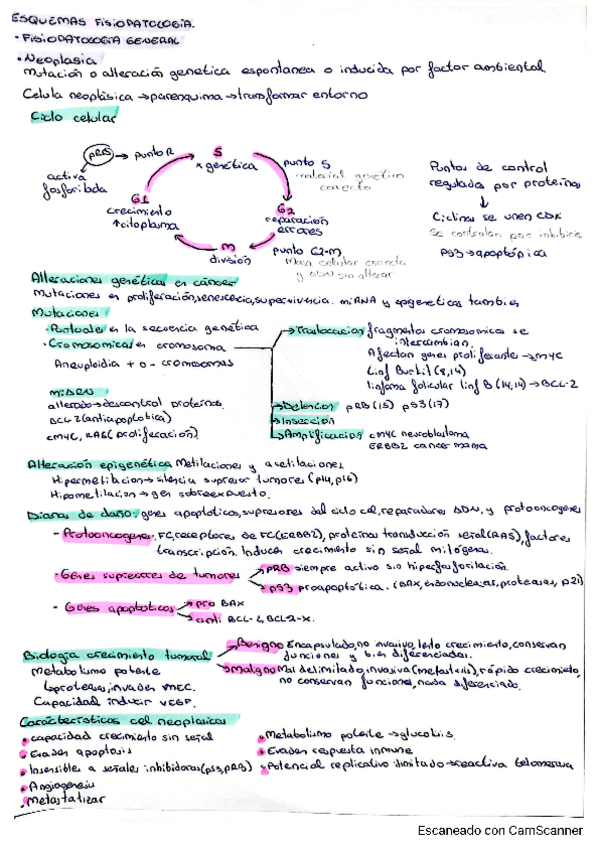 ESQUEMAS FISIOPATOLOGÍA.
- FISIOPATOLOGÍA GENERAL
· Neoplasia
Mutación o alteración genetica espontanea o inducida por factor ambiental
Celula neoplásica → parenquima → transformar entorno
Ciclo celular
pRB → punto R
activa
fosforilada
S
x genética
punto S
material genético
correcto
G1
crecimiento
↑ citoplasma
G2
reparación
errores
M
división
punto G2-M
Masa celular correcta
y ADN sin alterar
Puntos de control
regulados por proteínas
↓
Ciclinas se unen CDK
Se controlan por inhibición
P53 → apoptópica
Alteraciones genéticas en cáncer
Mutaciones en proliferación, senescencia, supervivencia. miRNA y epigeneticas también
Mutaciones
- Puntuales en la secuencia genética
- Cromosomicas en cromosoma
Aneuploidia + o - cromosomas
→ Traslocacion fragmentos cromosomicos se
intercambian.
Afectan genes proliferante → MYC
Linf Burkit (8,14)
linfoma folicular linf B (14,14) → BCL-2
→ Delecion pRB (15) p53 (17)
→ Inserccion
→ Amplificacion cMYC neuroblastoma
ERBB2 cancer mama
alterado → descontrol proteinas.
BCL-2 (antiapoptotica)
cMYC, RAS (proliferación)
Alteración epigenética Metilaciones y acetilaciones
Hipermetilacion → silencia supresor tumores (p14, p16)
Hipometilacion → gen sobreexpuesto.
Dianas de daño: genes apoptoticos, supresores del ciclo cel, reparadores ADN, y protooncogenes
- Protooncogenes, FC, receptores de FC (ERBB2), proteínas transducción señal (RAS), factores
transcripción. Inducen crecimiento sin señal mitógena.
- Genes supresores de tumores
→ PRB siempre activo sin hiperfosforilación.
→ p53 proapoptótica. (BAX, endonucleasas, proteasas, p21)
- Genes apoptoticos
→ pro BAX
→ anti BCL-2, BCL2-X.
Biología crecimiento tumoral
→ Benigno Encapsulado, no invasivo, lento crecimiento, conservan
funciones y bien diferenciadas.
→ Maligno Mal delimitado, invasiva (metastasis), rápido crecimiento,
no conservan funciones, nada diferenciado.
Metabolismo potente
↳ proteasas, invaden MEC.
Capacidad inducir VEGF.
Características cel neoplasicas
· capacidad crecimiento sin señal
· Evaden apoptosis
· Insensible a señales inhibidoras (p53, pRB)
· Angiogenesis
· Metastatizar
· Metabolismo potente → glucolisis.
· Evaden respuesta inmune
· Potencial replicativo ilimitado → reactiva telomerasa
Escaneado con CamScanner